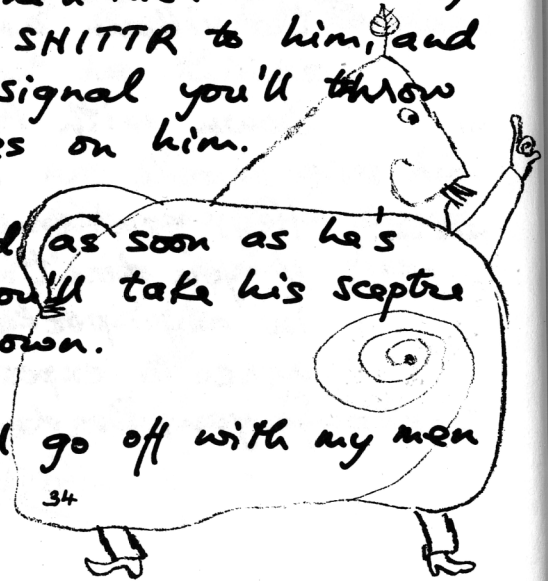 SHITTR to him, and
signal you'll throw
es on him.
as soon as he's
ou'll take his sceptre
own.
go off with my men
34